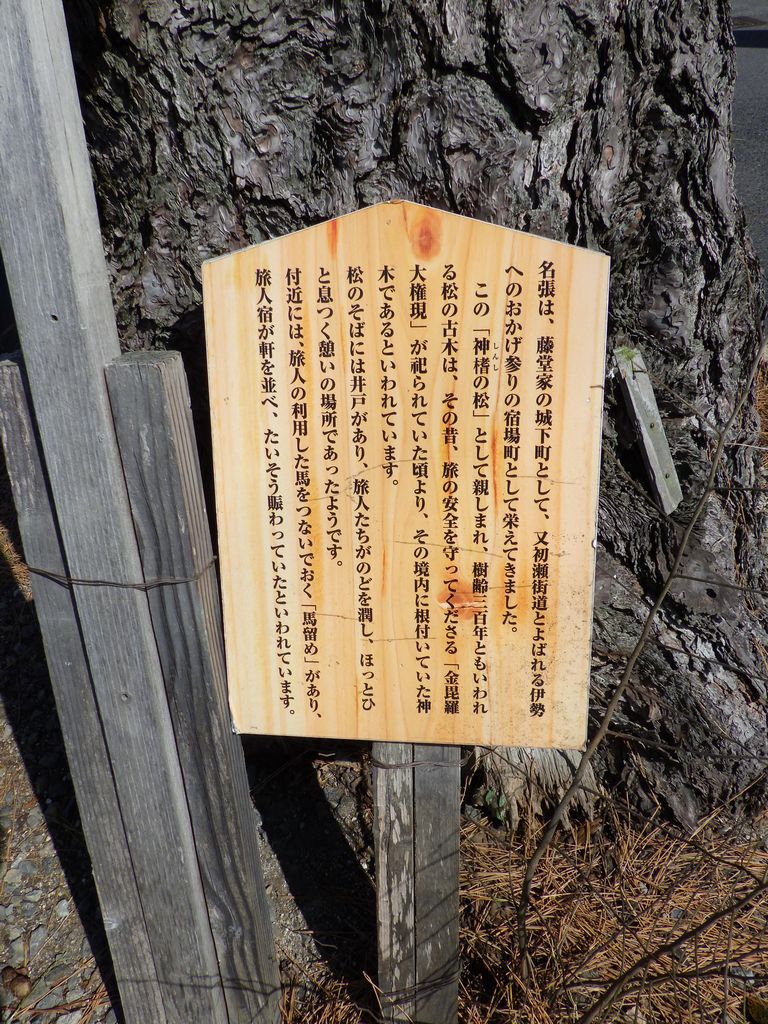 名張は、藤堂家の城下町として、又初瀬街道とよばれる伊勢
へのおかげ参りの宿場町として栄えてきました。
この「神楮の松」として親しまれ、樹齢三百年ともいわれ
しんし
る松の古木は、その昔、旅の安全を守ってくださる「金毘羅
大権現」が祀られていた頃より、その境内に根付いていた神
木であるといわれています。
松のそばには井戸があり、旅人たちがのどを潤し、ほっとひ
と息つく憩いの場所であったようです。
付近には、旅人の利用した馬をつないでおく「馬留め」があり、
旅人宿が軒を並べ、たいそう賑わっていたといわれています。